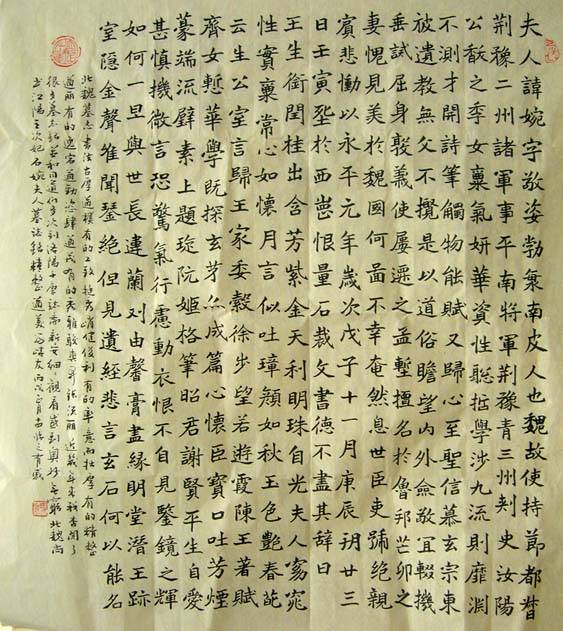 夫人諱婉字敬姿勃海南皮人也魏故使持節都督
荊豫二州諸軍事平南將軍荊豫青三州刾史汝陽
公馛之季女稟氣妍華資性聡悊學涉九流則靡淵
不測才開詩筆觸物能賦又歸心至聖信慕玄宗東
被遺教無文不攬是以道俗瞻望內外僉敬冝輟機
垂試屈身毀義使屢遷之孟慙擅名於魯邦芒卯之
妻愧見美於魏國何啚不幸奄然息世臣吏踊絕親
賓悲慟以永平元年歲次戊子十一月庚辰朔廿三
日壬寅窆於西崗恨量石裁文書德不盡其辞曰
玉生銜閏桂出含芳紫金天利明珠自光夫人窈窕
性實稟常心如懷月言似吐璋顏如秋玉色艷春葩
云生公室言歸王家委轂徐步望若遊霞陳王著賦
齊女慙華學既探玄才亦成篇心懷臣寶口吐芳煙
篆端流璧素上題琁阮姬格筆昭君謝賢平生自愛
甚慎機微言恐驚氣行慮動衣恨不自見鋻鏡之輝
如何一旦與世長違蘭刈由馨膏盡緣明堂潛玉跡
室隱金聲雖聞琴絕但見遺經悲言玄石何以能名
北魏墓志書法古厚道樸有的工致挺秀峭健俊利有的率意而壮厚有的精整
遒麗有的逸宕遒勁
很多墓志
江陽王次妃石婉夫人墓誌銘精整遒美